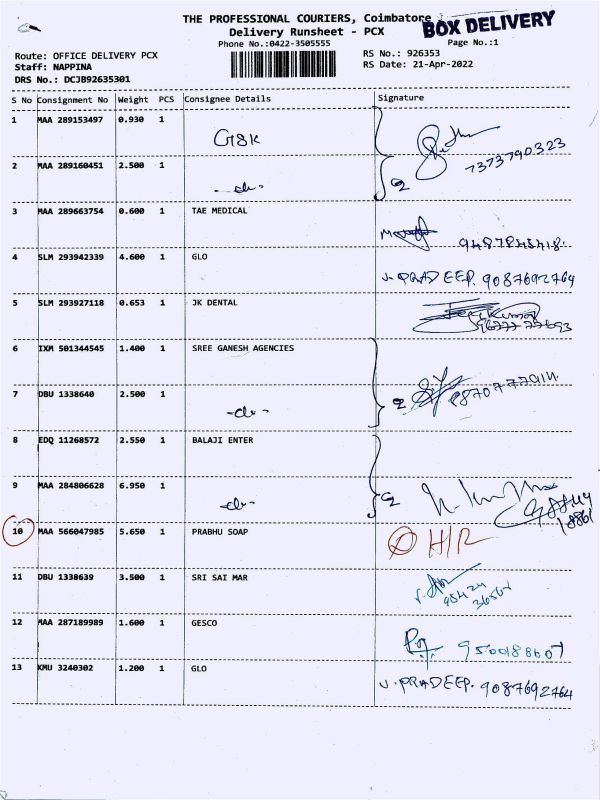 THE PROFESSIONAL COURIERS, Coimbatore
BOX DELIVERY
Delivery Runsheet - PCX
Phone No.:0422-3505555
Page No.:1
Route: OFFICE DELIVERY PCX
RS No.: 926353
Staff: NAPPINA
RS Date: 21-Apr-2022
DRS No.: DCJB92635301
S No Consignment No Weight PCS Consignee Details Signature
1 MAA 289153497 0.930 1 GSK
7373790323
2 MAA 289160451 2.500 1 -do-
3 MAA 289663754 0.600 1 TAE MEDICAL
9487845418.
4 SLM 293942339 4.600 1 GLO
J. PRADEEP. 9087692764
5 SLM 293927118 0.653 1 JK DENTAL
6 IXM 501344545 1.400 1 SREE GANESH AGENCIES
7 DBU 1338640 2.500 1 -do-
8 EDQ 11268572 2.550 1 BALAJI ENTER
9 MAA 284806628 6.950 1 -do-
10 MAA 566047985 5.650 1 PRABHU SOAP H/R
11 DBU 1338639 3.500 1 SRI SAI MAR
12 MAA 287189989 1.600 1 GESCO
9500188607
13 KMU 3240302 1.200 1 GLO
J. PRADEEP. 9087692764